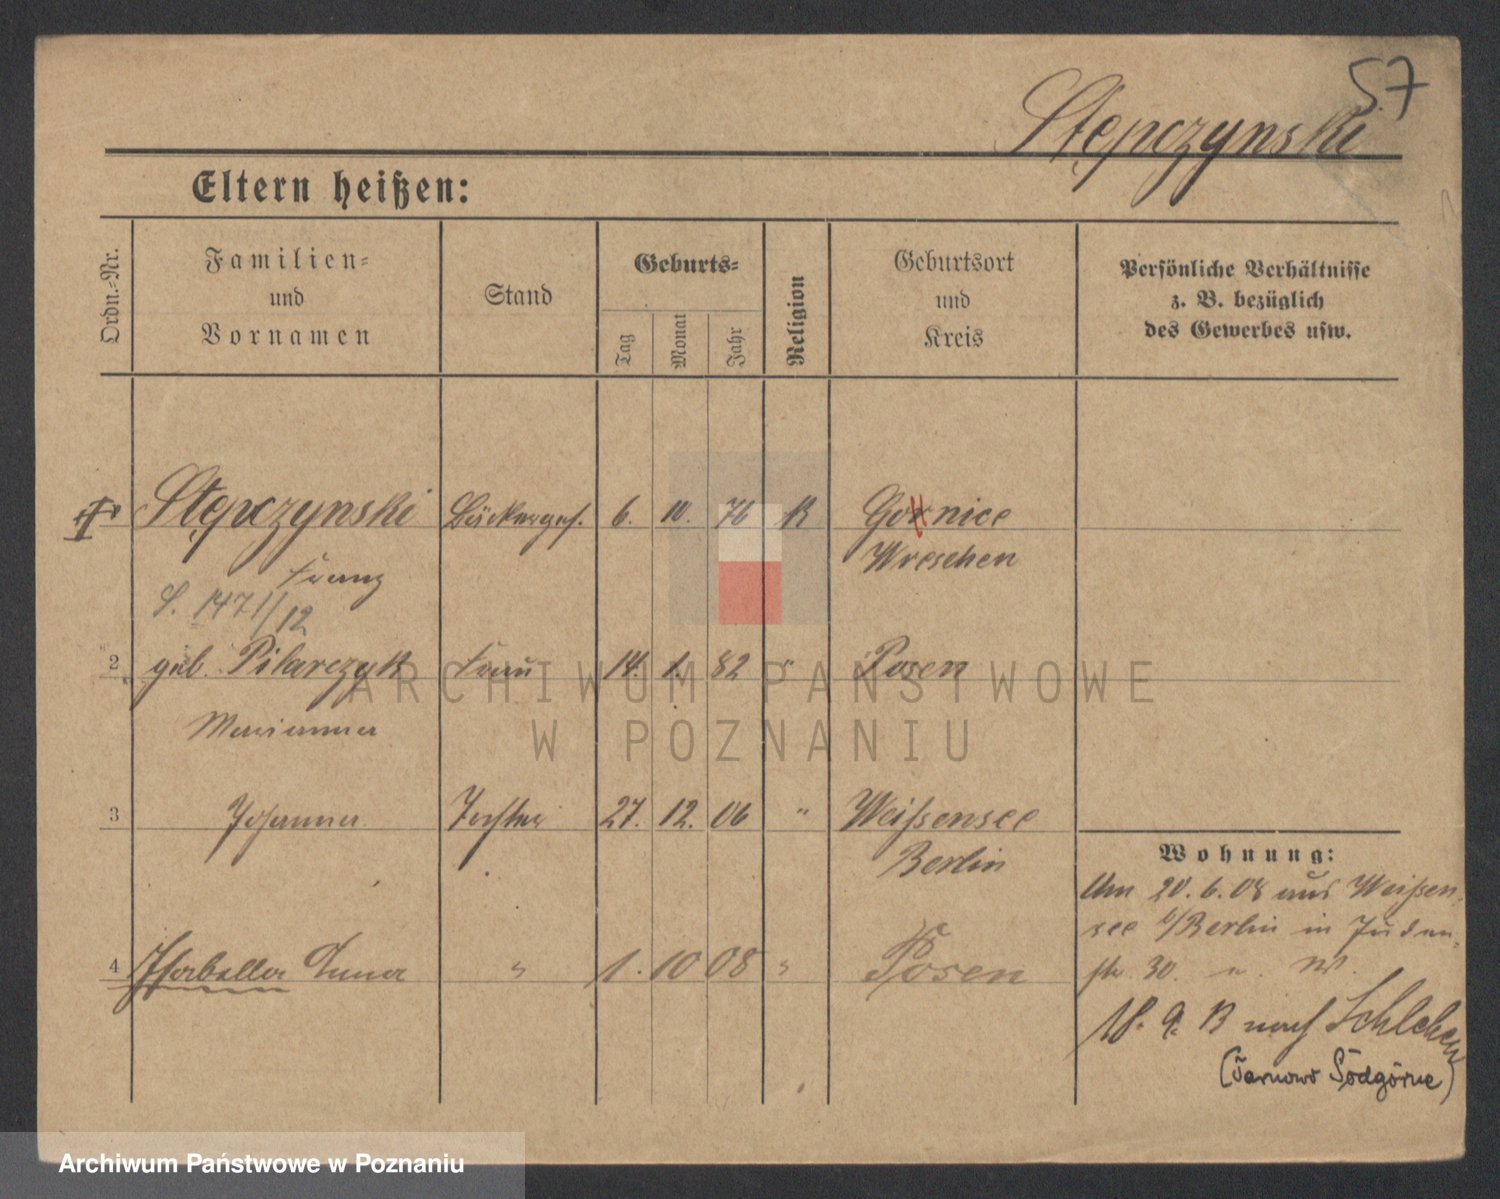 57
Stępczynski
Eltern heißen:
Ordn.=Nr.
Familien=
und
Vornamen
Stand
Geburts=
Tag
Monat
Jahr
Religion
Geburtsort
und
Kreis
Persönliche Verhältnisse
z. B. bezüglich
des Gewerbes usw.
Stępczynski Bäckerges. 6. 10. 76 K Gornice
Franz Wreschen
S. 1471/12
2 geb. Pilarczyk Frau 14. 1. 82 " Posen
Marianna
3 Johanna Tochter 27. 12. 06 " Weißensee
Berlin
4 Isabella Anna " 1. 10 08 " Posen
Wohnung:
Am 20. 6. 08 aus Weißen-
see b/Berlin in Juden-
str. 30.
18. 9. 13 nach Schlehen
(Tarnowo Podgórne)
ARCHIWUM PAŃSTWOWE
W POZNANIU
Archiwum Państwowe w Poznaniu